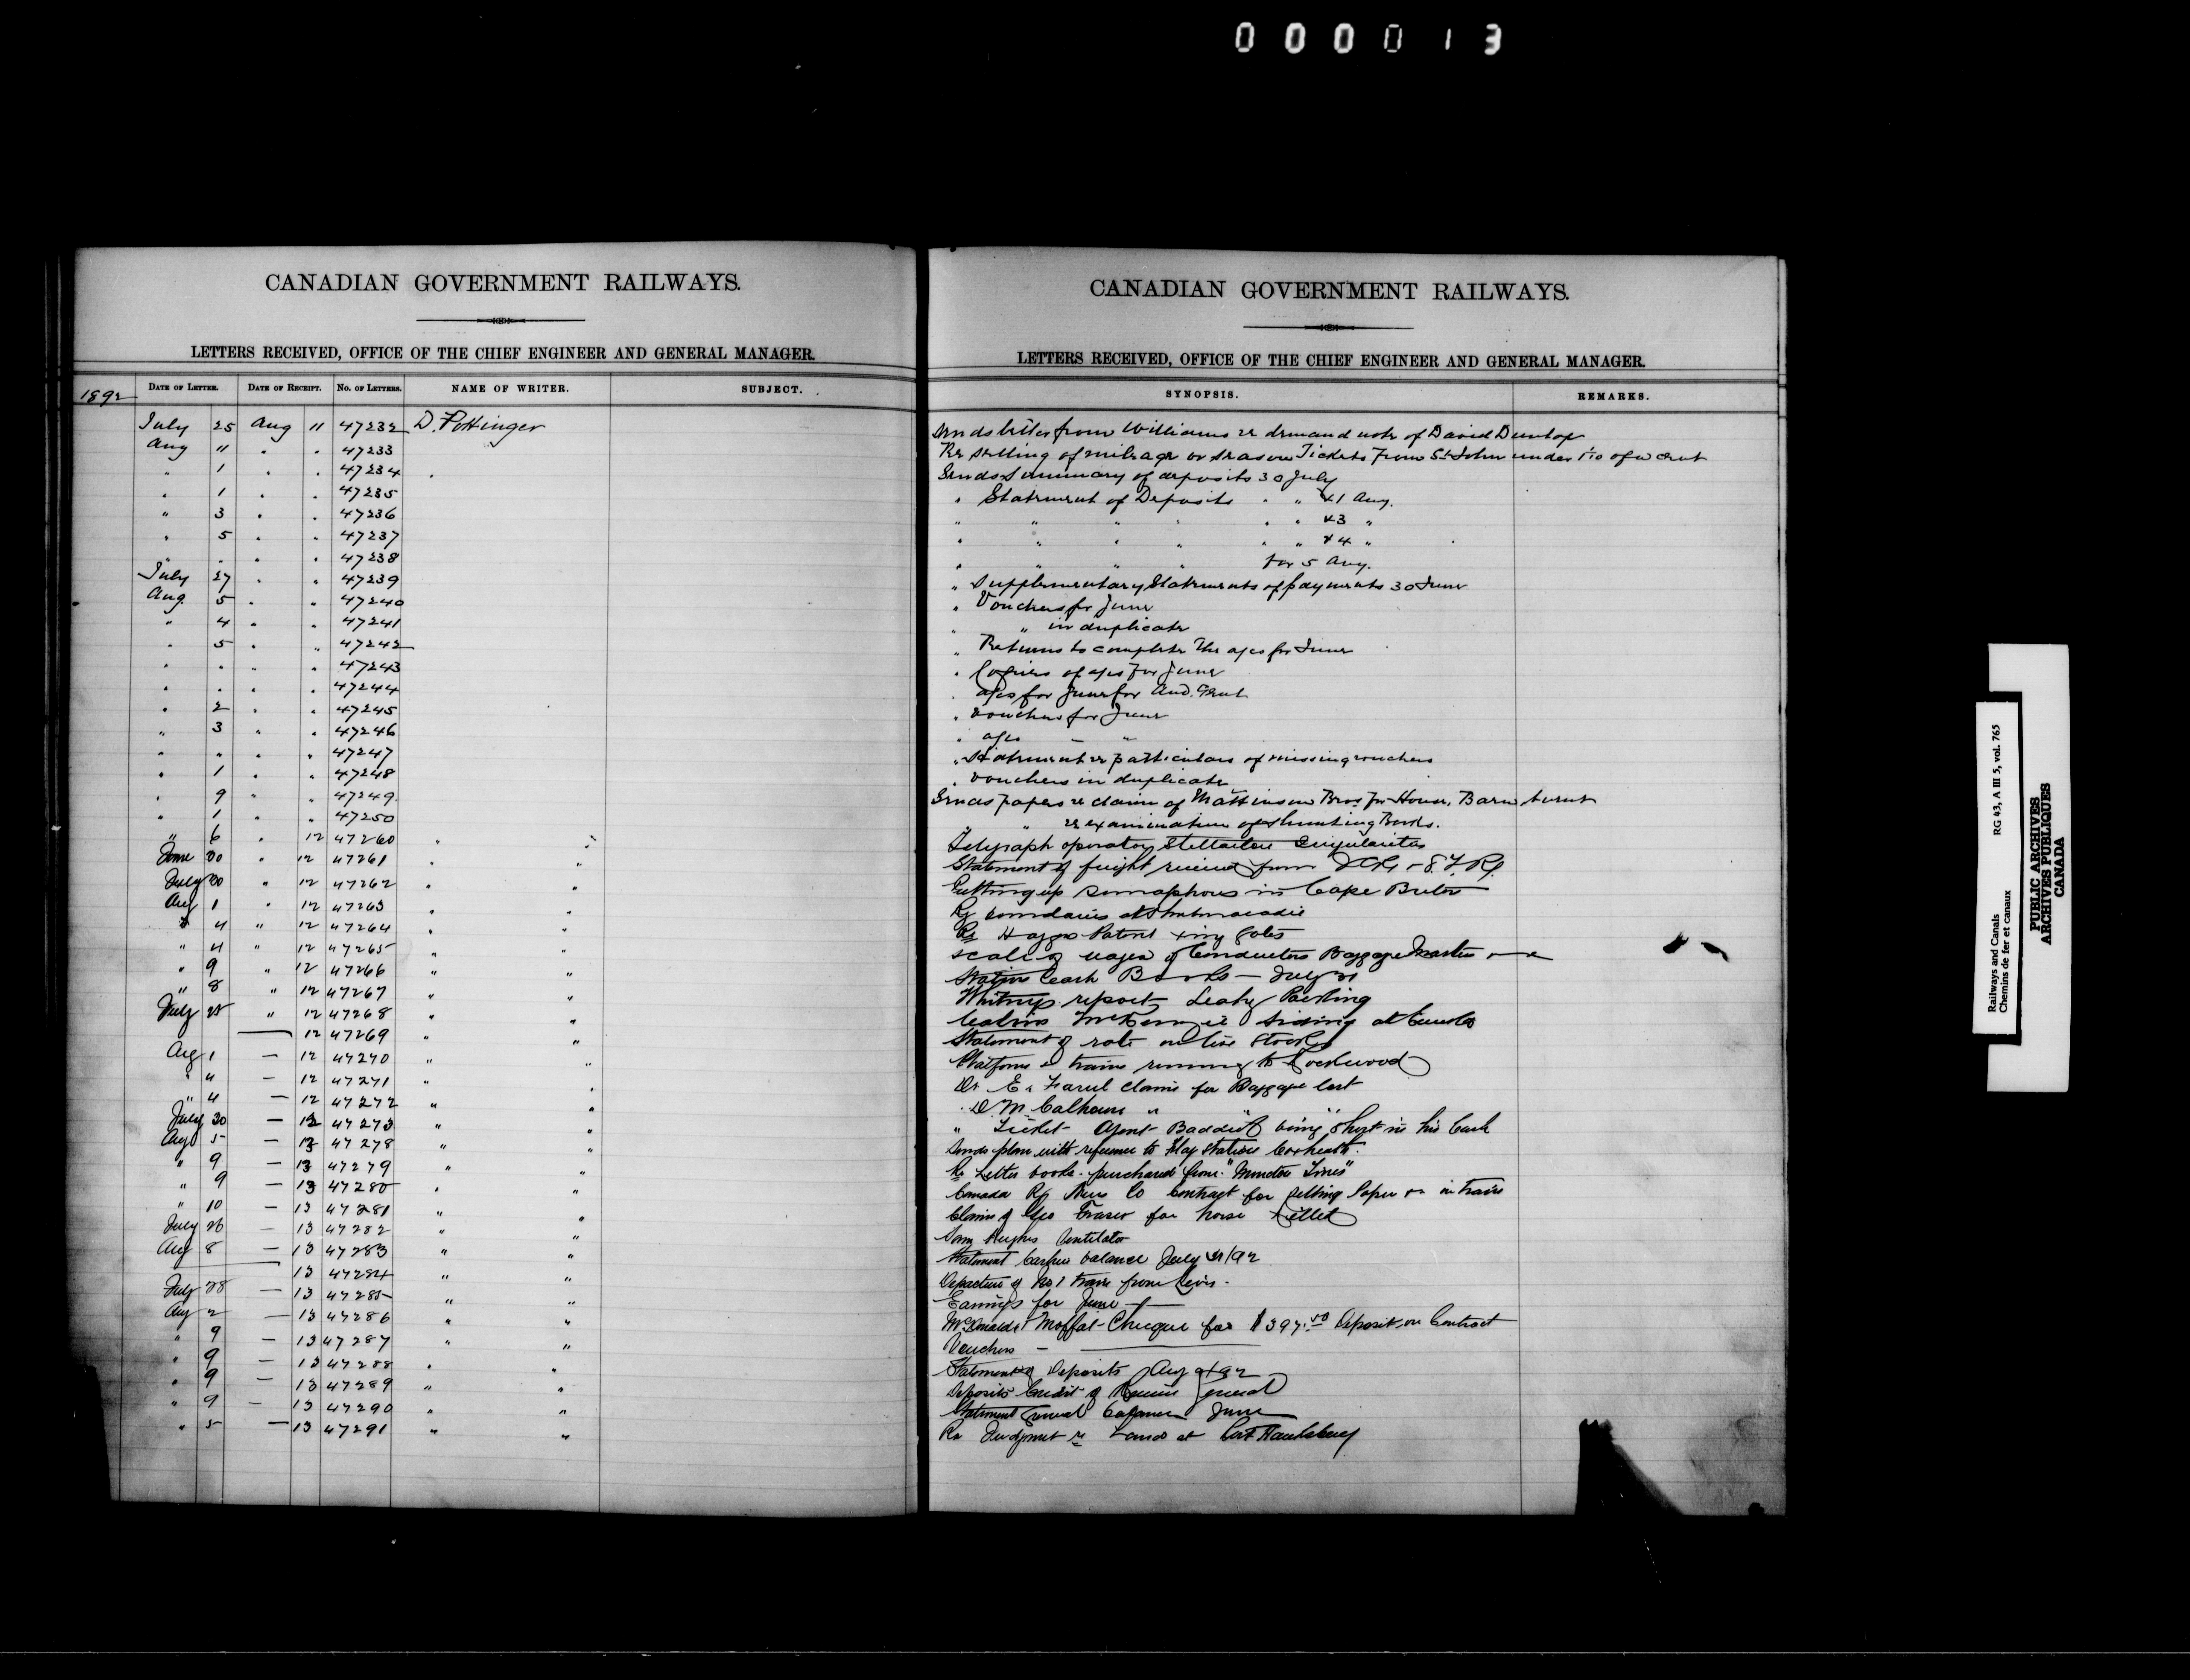 000013
CANADIAN GOVERNMENT RAILWAYS.
LETTERS RECEIVED, OFFICE OF THE CHIEF ENGINEER AND GENERAL MANAGER.
1892 DATE OF LETTER. DATE OF RECEIPT. NO. OF LETTERS. NAME OF WRITER. SUBJECT.
July 25 Aug 11 47232 D. Pottinger
Aug 11 . . 47233
" 1 . . 47234
. 1 . . 47235
" 3 . . 47236
. 5 . . 47237
. . . . 47238
July 27 . . 47239
Aug. 5 . . 47240
" 4 . . 47241
. 5 . " 47242
. . . . 47243
. . . . 47244
. 2 . . 47245
" 3 " . 47246
. . . . 47247
. 1 . . 47248
. 9 " " 47249
. 1 . . 47250
" 6 . 12 47260 " "
June 30 . 12 47261 . "
July 30 " 12 47262 . "
Aug 1 . 12 47263 . "
" 4 " 12 47264 . "
" 4 " 12 47265 " "
" 9 " 12 47266 " "
" 8 " 12 47267 " "
July 25 " 12 47268 " "
— 12 47269 " "
Aug 1 — 12 47270 " "
" 4 — 12 47271 " "
" 4 — 12 47272 " "
July 30 — 12 47273 " "
Aug 5 — 13 47278 " "
" 9 — 13 47279 " "
" 9 — 13 47280 " "
" 10 — 13 47281 " "
July 26 — 13 47282 " "
Aug 8 — 13 47283 " "
— 13 47284 " "
July 28 — 13 47285 " "
Aug 2 — 13 47286 " "
" 9 — 13 47287 " "
" 9 — 13 47288 " "
" 9 — 13 47289 " "
" 9 — 13 47290 " "
" 5 — 13 47291 " "
CANADIAN GOVERNMENT RAILWAYS.
LETTERS RECEIVED, OFFICE OF THE CHIEF ENGINEER AND GENERAL MANAGER.
SYNOPSIS. REMARKS.
Sends letter from Williams re demand note of David Dunlop
Re selling of mileage or season Tickets from St John under
Sends Summary of deposits 30 July
" Statement of Deposits . " & 1 Aug.
" " " " . " & 3 "
" " " " . " & 4 "
" " " " for 5 Aug.
" Supplementary Statements of payments 30 June
" Vouchers for June
" " in duplicate
" Returns to complete the a/cs for June
" Copies of a/cs for June
" a/cs for June for Aud. Genl
" Vouchers for June
" a/cs " "
" Statement re particulars of missing vouchers
" vouchers in duplicate
Sends papers re claim of Mattinson Bros for House, Barn burnt
" " re examination of Shunting
Telegraph operator Stellarton
Statement of freight received from
Putting up semaphores in Cape Breton
Re boundaries at Shubenacadie
Re Patent
scale of wages of Conductors Baggage Master
Station Cash Books — July
Whitneys report Packing
McKenzie siding at
Statement of rate on live Stock
Platform & trains running to Rockwood
Dr E. claim for Baggage lost
D. M. Calhoun " " "
" Ticket Agent being short in his Cash
Sends plan with reference to Flag Station
Re Letter books purchased from "Moncton Times"
Canada Ry News Co Contract for selling Paper on trains
Claim of Geo Fraser for horse killed
Hughes Ventilator
Statement balance July 31/92
Departure of No 1 train from Levis.
Earnings for June
McDonald & Moffat Cheque for $397.50 Deposit on Contract
Vouchers —
Statement of Deposits Aug 9/92
Deposits Credit of Receiver General
Statement General balance June
Re Judgment re Land at Port Hawkesbury
Railways and Canals RG 43, A III 5, vol. 765
Chemins de fer et canaux
PUBLIC ARCHIVES
ARCHIVES PUBLIQUES
CANADA